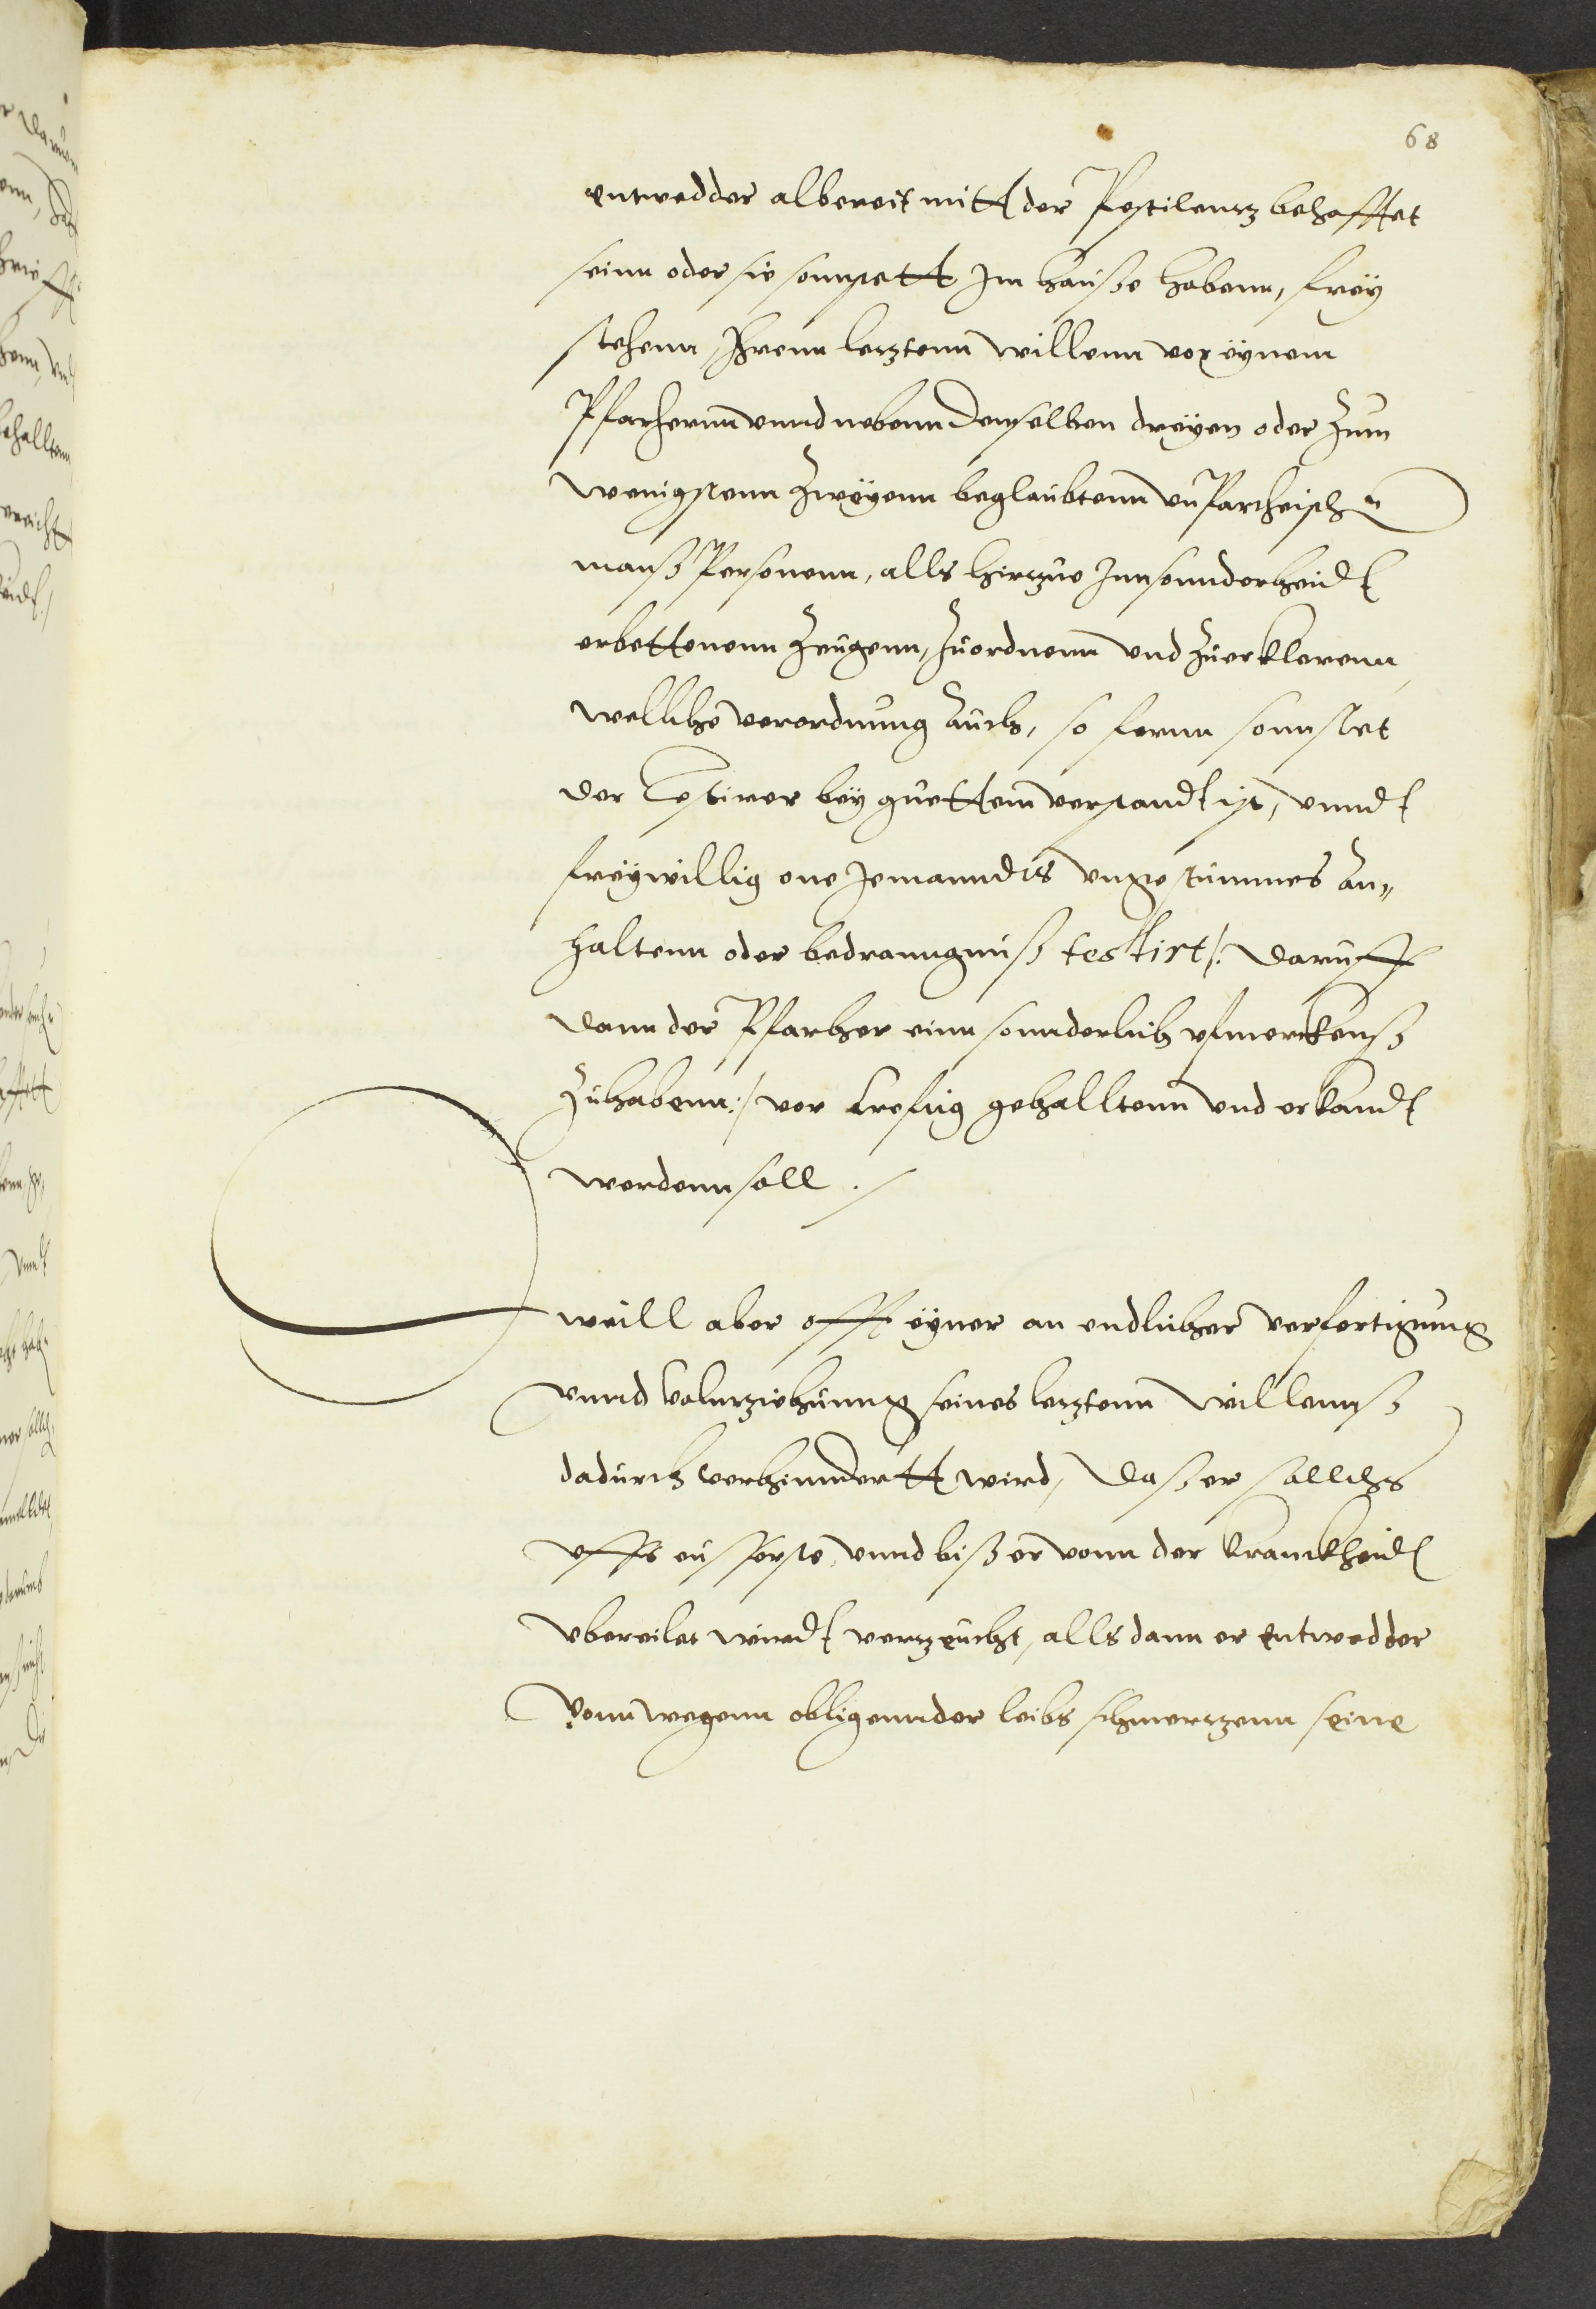 68
entwedder albereit mitt der Pestilentz behafftet
seinn oder sie sonnstett Im hauße habenn, freÿ
stehenn, Ihrenn letztenn willenn vor eÿnem
Pfarhernn vnnd nebenn demselben dreÿen oder Zum
wenigstenn Zweÿenn beglaubtenn vnPartheischen
manß Personenn, alls hirtzue Innsonnderheidt
erbettenenn Zeugenn, Zuordnenn vnd Zuerklerenn,
wellche verordnung auch, so fernn sonnstet
der Testirer beÿ guettem verstandt ist, vnndt
freÿwillig one Jemanndts vngestümmes an„
haltenn oder bedranngnuß testirt /: daruff
dann der Pfarher einn sonnderlich vfmerckenß
Zuhabenn :/ vor kreftig gehalltenn vnd erkandt
werdenn soll ./
weill aber offt eÿner an endlicher verfertigung
vnnd volnziehunng seines letztenn willennß
dadurch verhinndertt wird, daß er sollchs
vffs eusserste, vnnd biß er vonn der Kranckheidt
vbereilet wirdt verzeucht, allsdann er entwedder
vonn wegenn obligennder leibs schmertzenn seine